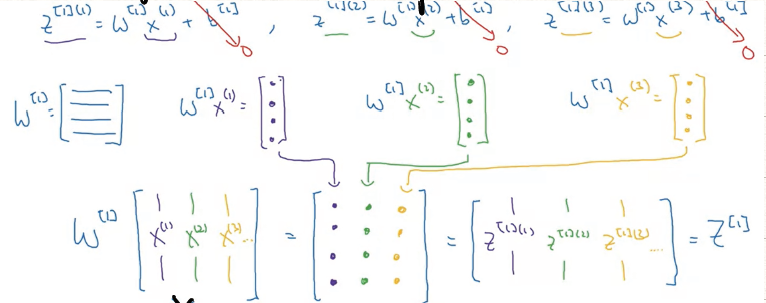 z^{[1](1)} = W^{[1]} x^{(1)} + b^{[1]} , z^{[1](2)} = W^{[1]} x^{(2)} + b^{[1]} , z^{[1](3)} = W^{[1]} x^{(3)} + b^{[1]}
0 0 0
W^{[1]} = [ ] W^{[1]} x^{(1)} = [ ] W^{[1]} x^{(2)} = [ ] W^{[1]} x^{(3)} = [ ]
W^{[1]} [ x^{(1)} x^{(2)} x^{(3)} ... ] = [ ] = [ z^{[1](1)} z^{[1](2)} z^{[1](3)} .... ] = Z^{[1]}